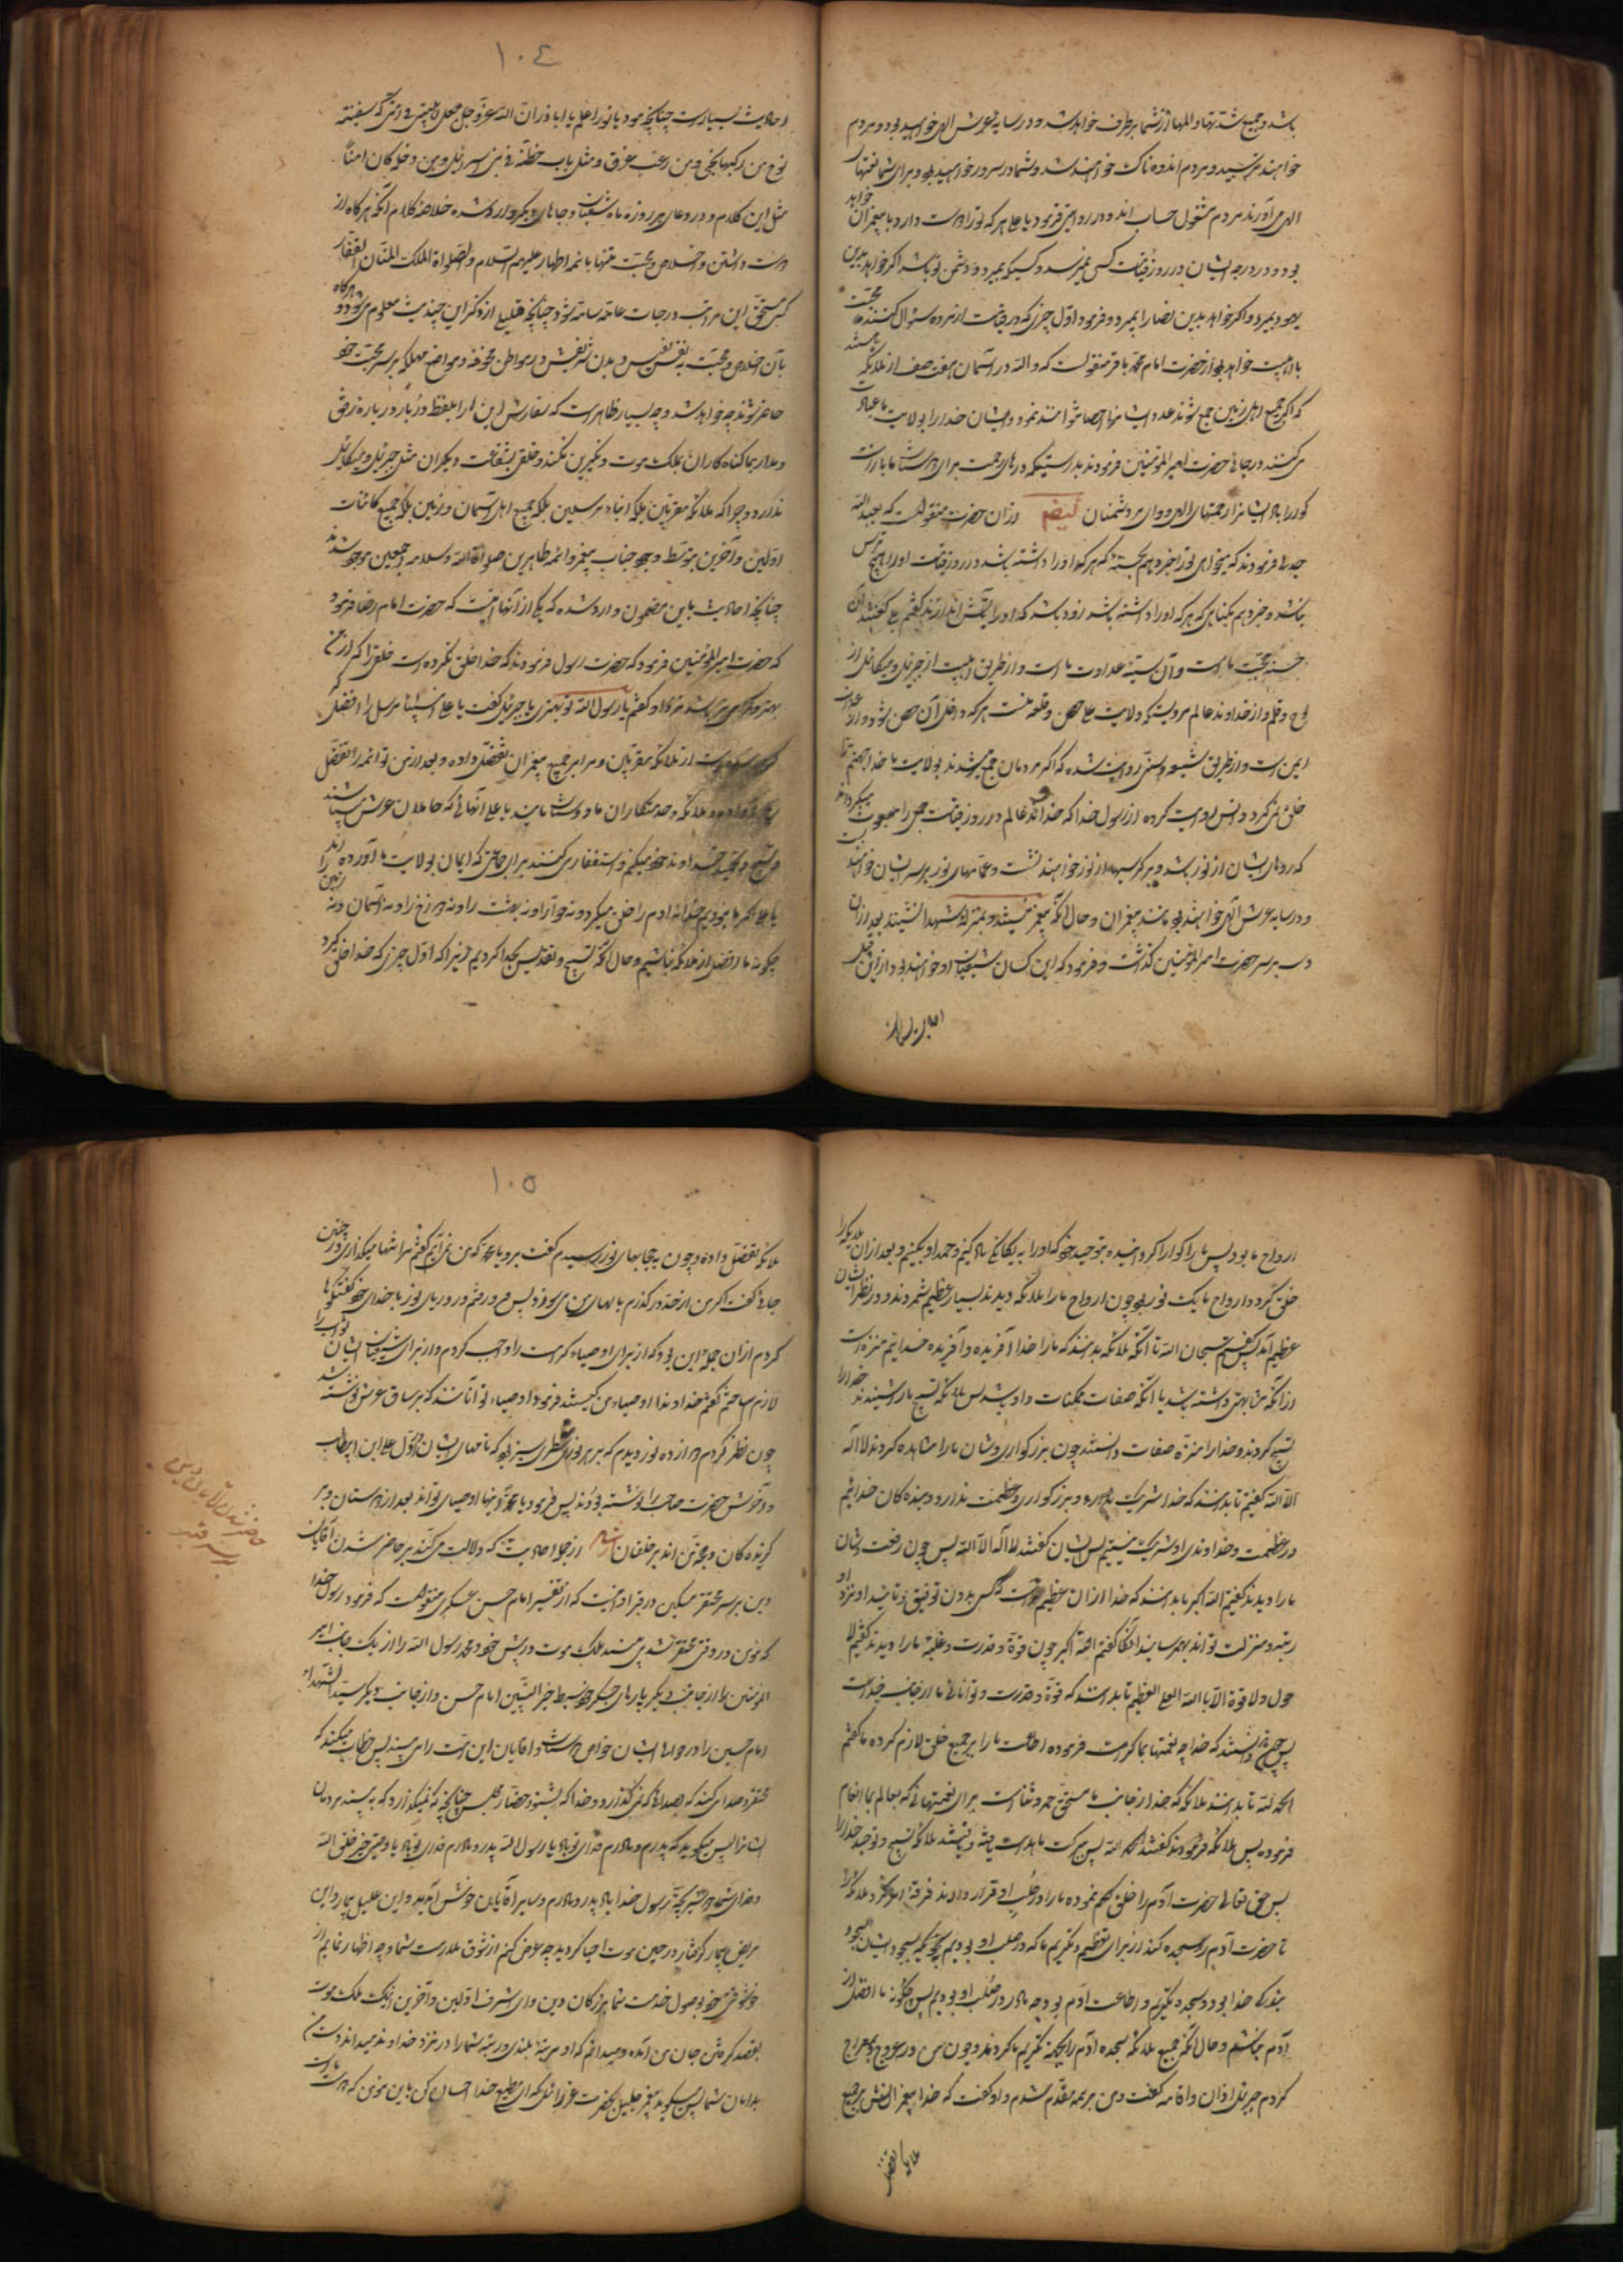 باشد و جمیع شدتها و المها از شما برطرف خواهد شد و در سایه عرش الهی خواهید بود و مردم
خواهند ترسید و مردم اندوهناک خواهند شد و شما در سرور خواهید بود و برای شما نعمتهای
الهی می آورند مردم مشغول حساب اند و در روایتی فرمود یا علی هر که تو را دوست دارد با پیغمبران خواهد
بود و در درجه ایشان در روز قیامت کسی نمیرسد و کسیکه بمیرد و دشمن تو باشد اگر خواهد بدین
یهود بمیرد و اگر خواهد بدین نصارا بمیرد و فرمود اول چیزی که در قیامت از بنده سئوال کنند محبت
ما اهلبیت خواهد بود از حضرت امام محمد باقر منقولست که والله در آسمان هفت صف از ملائکه باشند
که اگر جمیع اهل زمین جمع شوند عدد ایشانرا احصا نتوانند نمود و ایشان خدا را بولایت ما عبادت
می کنند در جائی حضرت امیر المؤمنین فرمودند بدرستیکه درهای رحمت برای دوستان ما بازست
گوارا باد ایشانرا رحمتهای الهی و وای بر دشمنان ایضم از ان حضرت منقولست که بعبد الله
جدلی فرمودند که میخواهی تو را خبر دهم بحسنهٔ که هر که او را داشته باشد در روز قیامت او را هیچ ترس
نباشد و خبر دهم بگناهی که هر که او را داشته باشد زود باشد که او را بآتش اندازند گفتم بلی گفتند آن
حسنه محبت ما است و آن سیئه عداوت ما است و از طریق اهلبیت از جبرئیل و میکائیل از
لوح و قلم و از خداوند عالم مرویست که ولایت علی حصن و قلعه منست هر که داخل آن حصن شود و از عذاب
ایمن است و از طریق شیعه و سنی روایت شده که اگر مردمان جمع میشدند بولایت ما خدا جهنم را
خلق نمی کرد و انس روایت کرده از رسول خدا که خداوند عالم در روز قیامت جمعی را مبعوث میگرداند
که روهای ایشان از نور باشد و بر کرسیها از نور خواهند نشست و عمامهای نور بر سر ایشان خواهد
و در سایه عرش الهی خواهند بود مانند پیغمبران و حال آنکه پیغمبر نیستند و بمنزله شهدا نشینند بعد از ان
دست بر سر حضرت امیر المؤمنین گذاشت و فرمود که این کسان شیعیان او خواهند بود از این قبیل
احادیث بسیارست
۱۰٤
احادیث بسیارست چنانچه فرمود یا ابوذر اعلم یا اباذر ان الله عز و جل جعل اهلبیتی فی امتی کسفینة
نوح من رکبها نجی و من رغب عنها غرق و مثل باب حطة فی بنی اسرائیل و من دخله کان امنا
مثل این کلام و در دعای هر روزه ماه شعبان و جاهای دیگر وارد شده خلاصه کلام آنکه هر گاه از
دوست داشتن و اخلاص و محبت تنها با ائمه اطهار علیهم السلام و الصلواة الملک المنان الغفار
کسی مستحق این مراتب و درجات عالیه سامیه شود چنانچه قلیلی از ذکر این چند حدیث معلوم میشود هرگاه
بآن اخلاص و محبت بنفس نفیس و بدن شریفش در مواطن مخوفه و مواضع مهلکه بر سر محبت خود
حاضر شوند چه خواهد شد و چه بسیار ظاهر است که سفارش این ها را بلفظ در بار در باره رفق
و مدارا با گناه کاران بملک موت و نکیرین نکنند و خلق بشفاعت دیگران مثل جبرئیل و میکائیل
ندارد و چرا که ملائکه مقربین بلکه انبیاء مرسلین بلکه جمیع اهل آسمان و زمین بلکه جمیع کائنات
اولین و آخرین بتوسط وجود جناب پیغمبر و ائمه طاهرین صلواة الله و سلامه اجمعین موجود شدند
چنانچه احادیث باین مضمون وارد شده که یکی از آنها اینست که حضرت امام رضا فرمود
که حضرت امیر المؤمنین فرمود که حضرت رسول فرمودند که خدا خلق نکرده است خلقی را که از من
بهتر و گرامی تر باشد نزد او گفتم یا رسول الله تو بهتری یا جبرئیل گفت یا علی انبیاء مرسل را افضل
از ملائکه مقربین و مرا بر جمیع پیغمبران تفضیل داده و بعد از من تو و ائمه را تفضیل
داده و ملائکه خدمتکاران ما و دوستان مایند یا علی آنهائی که حاملان عرش میباشند
تسبیح و تحمید خداوند خود میکنند و استغفار میکنند برای جماعتی که ایمان بولایت ما آورده اند
یا علی اگر ما نبودیم خدا نه ادم را خلق میکرد و نه حوا را و نه بهشت را و نه دوزخ را و نه آسمان و نه زمین را
چگونه ما افضل از ملائکه نباشیم و حال آنکه تسبیح و تقدیس خدا کردیم زیرا که اول چیزی که خدا خلق کرد
ارواح ما بود پس ما را گویا گردانیده بتوحید خود که او را به یگانگی یاد کنیم و حمد او بکنیم و بعد از ان ملائکه را
خلق کرد و ارواح ما یک نور بود چون ارواح ما را ملائکه دیدند بسیار عظیم شمردند و در نظر ایشان
عظیم آمد پس گفتیم سبحان الله تا آنکه ملائکه بدانند که ما را خدا آفریده و آفریده خدائیم منزه است
از آنکه بما شباهتی داشته باشد یا آنکه صفات ممکنات داد باشد پس ملائکه تسبیح ما را شنیدند خدا را
تسبیح کردند و خدا را منزه از صفات دانستند چون بزرگواری و شان ما را مشاهده کردند لا اله
الا الله گفتیم تا بدانند که خدا شریک ندارد و بزرگواری و عظمت ندارد و بنده کان خدائیم
در عظمت و خداوندی او شریک نیستیم پس ایشان گفتند لا اله الا الله پس چون رفعت شان
ما را دیدند گفتیم الله اکبر تا بدانند که خدا از ان عظیم تر است که کسی بدون توفیق و تائید او نزد او
رتبه و منزلت تواند بهم رساند آنگاه گفتیم الله اکبر چون قوة و قدرت و غلبه ما را دیدند گفتیم لا
حول و لا قوة الا بالله العلی العظیم تا بدانند که قوة و قدرت و توانائی ما از جانب خداست
پس چون دانستند که خدا چه نعمتها بما کرامت فرموده و اطاعت ما را بر جمیع خلق لازم کرده ما گفتیم
الحمد لله تا بدانند ملائکه که خدا از جانب ما مستحق حمد و ثنا است برای نعمتهائی که بعالم بما انعام
فرموده پس ملائکه فرمودند گفتند الحمد لله پس ببرکت ما هدایت یافتند و دانستند ملائکه تسبیح و توحید خدا را
پس حق تعالی حضرت آدم را خلق نموده ما را در صلب او قرار دادند فرمود امر کرد ملائکه را
تا حضرت آدم را سجده کنند از برای تعظیم و تکریم ما که در صلب او بودیم سجود
بندگی خدا بود و سجده تکریم و اطاعت آدم بود چه ما در صلب او بودیم پس چگونه ما افضل از
آدم نباشیم و حال آنکه جمیع ملائکه سجده آدم را بجهة تکریم ما کردند و چون من در عروج و معراج
کردم جبرئیل اذان و اقامه گفت و من بر همه مقدم شدم و او گفت که خدا پیغمبرانش بر جمیع
ملائکه تفضیل
۱۰۵
ملائکه تفضیل داده و چون به حجابهای نور رسیدم گفت برو یا محمد که من نمی آیم گفتم مرا تنها میگذاری در چنین
جائی گفت اگر من از حد در گذرم بالهای من می سوزد پس فرو رفتم در دریای نور با خدای خود گفتگوها
کردم از ان جمله این بود که از برای اوصیاء کرامت را واجب کردم و از برای شیعیان ایشان ثواب را
لازم ساختم گفتم خداوندا اوصیاء من کیستند فرمود اوصیاء تو آنانند که بر ساق عرش نوشته شد
چون نظر کردم دوازده نور دیدم که بر هر نوری سطری سبز بود که نامهای ایشان و اول علی ابن ابیطالب
و آخرش حضرت صاحب را نوشته بودند پس فرمود یا محمد اینها اوصیای تواند بعد از تو دوستان و بر
گزیده گان و حجتهای من اند بر خلقان از جمله احادیث که دلالت می کند بر حاضر شدن آقایان
دین بر سر محتضر مسکین در قرار اینست که از تفسیر امام حسن عسکری منقولست که فرمود رسول خدا
که مؤمن در وقتی محتضر شد می بیند ملک موت در پیش خود و محمد رسول الله را از یک جانب امیر
المؤمنین را از جانب دیگر پاره های جگر خود سبط خیر النبیین امام حسن و از جانب دیگر سید الشهداء
امام حسین را و در حوالی ایشان خواص دوستان و اقایان این امت را می بیند پس خطاب میکند که
محتضر صدا می کند که بصدائی که نمی گذارد و خدا که بشنود حضار مجلس چنانچه نمیگذارد که به بینند مردمان
ایشانرا پس میگوید که پدرم و مادرم فدای تو باد یا رسول الله پدر و مادرم فدای تو باد یا وصی خیر خلق الله
و فدای شما دو شیر بچهٔ رسول خدا باد پدر و مادرم و سایر آقایان خوش آمدید و این علیل بیمار و این
مریض بیمار گرفتار در حین موت احیا کردید چه عرض کنم از شوق ملازمت شما و چه اظهار نمایم از
خوشوقتی خود بوصول خدمت شما بزرگان دین و ای اشرف اولین و آخرین اینک ملک موت
بقصد گرفتن جان من آمده و میدانم که او مرتبهٔ بلندی و رتبه شما را در نزد خداوند میداند و دست من
بدامان شما پس میگوید پیغمبر جلیل بحضرت عزرائیل که ای مطیع خدا احسان کن باین مؤمن که دوست ما است